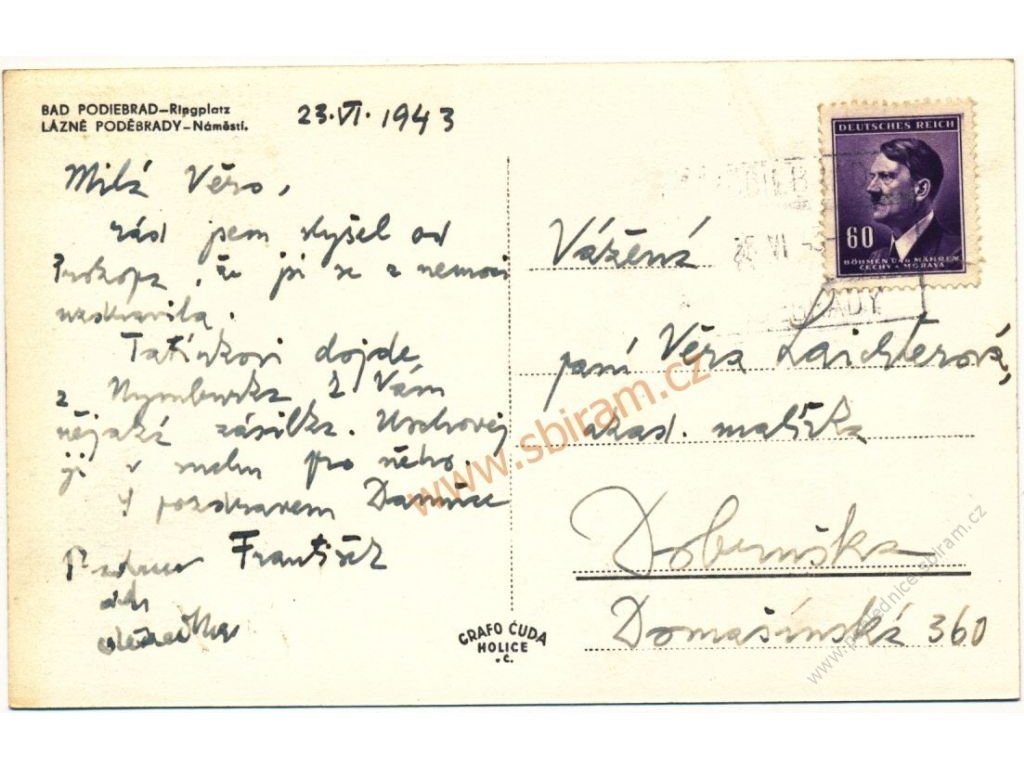 BAD PODIEBRAD–Ringplatz
LÁZNĚ PODĚBRADY–Náměstí.
23.VI.1943
Milá Věro,
rád jsem slyšel od
Prokopa, že jsi se z nemoci
uzdravila.
Tatínkovi dojde
z Nymburka k Vám
nějaká zásilka. Uschovej
ji v suchu pro něho.
S pozdravem Danuše
František
GRAFO ČUDA
HOLICE
v.Č.
DEUTSCHES REICH
60
BÖHMEN UND MÄHREN
ČECHY a MORAVA
Vážená
paní Věra Laichterová,
akad. malířka
Dobruška
Domašínská 360
www.sbiram.cz
www.pohlednice.sbiram.cz